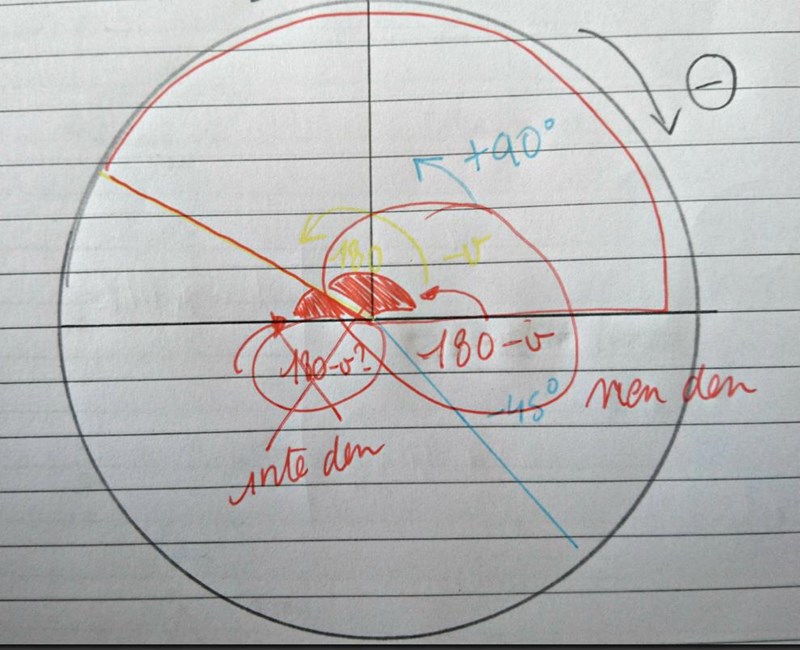 +90°
180 -v
180-v?
180-v
-45°
men den
inte den